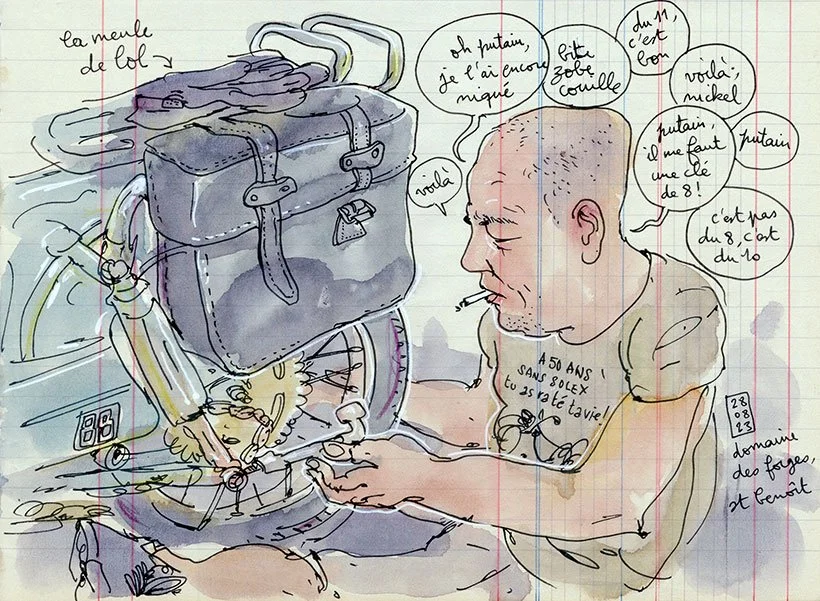 la meule
de lol →
oh putain,
je l'ai encore
niqué
bitte
zobe
couille
du 11,
c'est
bon
voilà,
nickel
putain,
il me faut
une clé
de 8!
putain
c'est pas
du 8, c'est
du 10
voilà
A 50 ANS
SANS SOLEX
tu as raté ta vie!
88
28
08
23
domaine
des forges,
st benoît